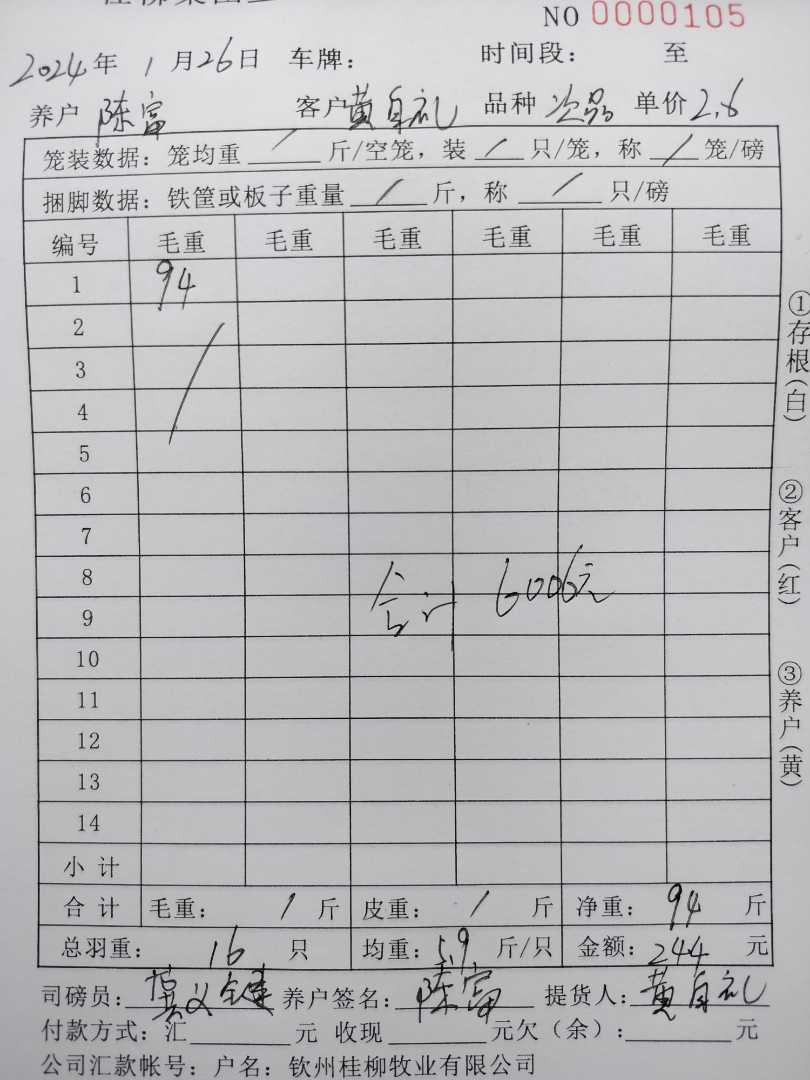 NO 0000105
2024年 1月26日 车牌: 时间段: 至
养户 陈富 客户 黄自礼 品种 次品 单价 2.6
笼装数据: 笼均重 / 斤/空笼, 装 / 只/笼, 称 / 笼/磅
捆脚数据: 铁筐或板子重量 / 斤, 称 / 只/磅
编号 毛重 毛重 毛重 毛重 毛重 毛重
1 94
2
3
4
5
6
7
8
合计 6006元
9
10
11
12
13
14
小计
合计 毛重: / 斤 皮重: / 斤 净重: 94 斤
总羽重: 16 只 均重: 5.9 斤/只 金额: 244 元
司磅员: 养户签名: 陈富 提货人: 黄自礼
付款方式: 汇 元 收现 元欠(余): 元
公司汇款帐号: 户名: 钦州桂柳牧业有限公司
①存根(白)
②客户(红)
③养户(黄)